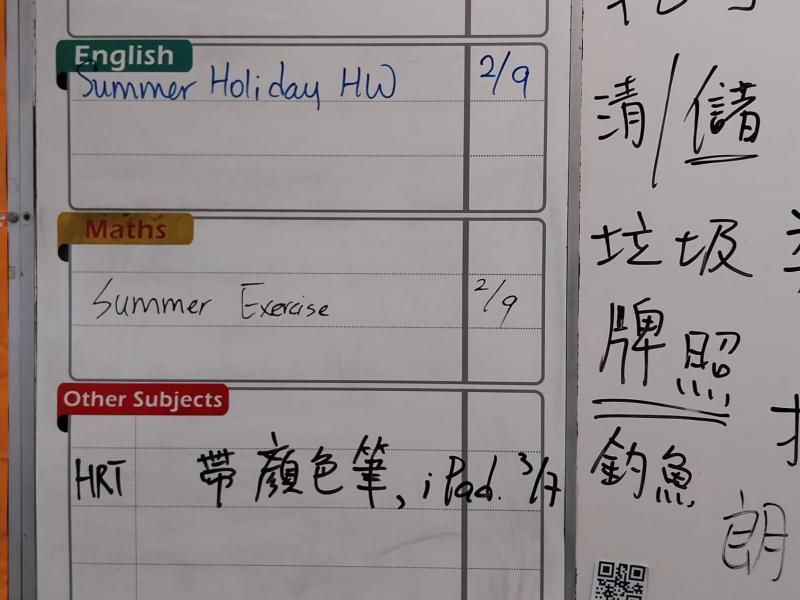 English
Summer Holiday HW 2/9
Maths
Summer Exercise 2/9
Other Subjects
HRT 帶顏色筆, iPad. 3/7
清/儲
垃圾
牌照
釣魚
朗